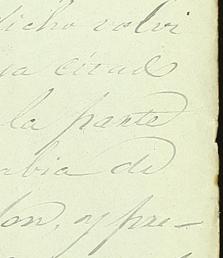 dicho volvi
ua citad
la parte
abia de
lon, y pre-